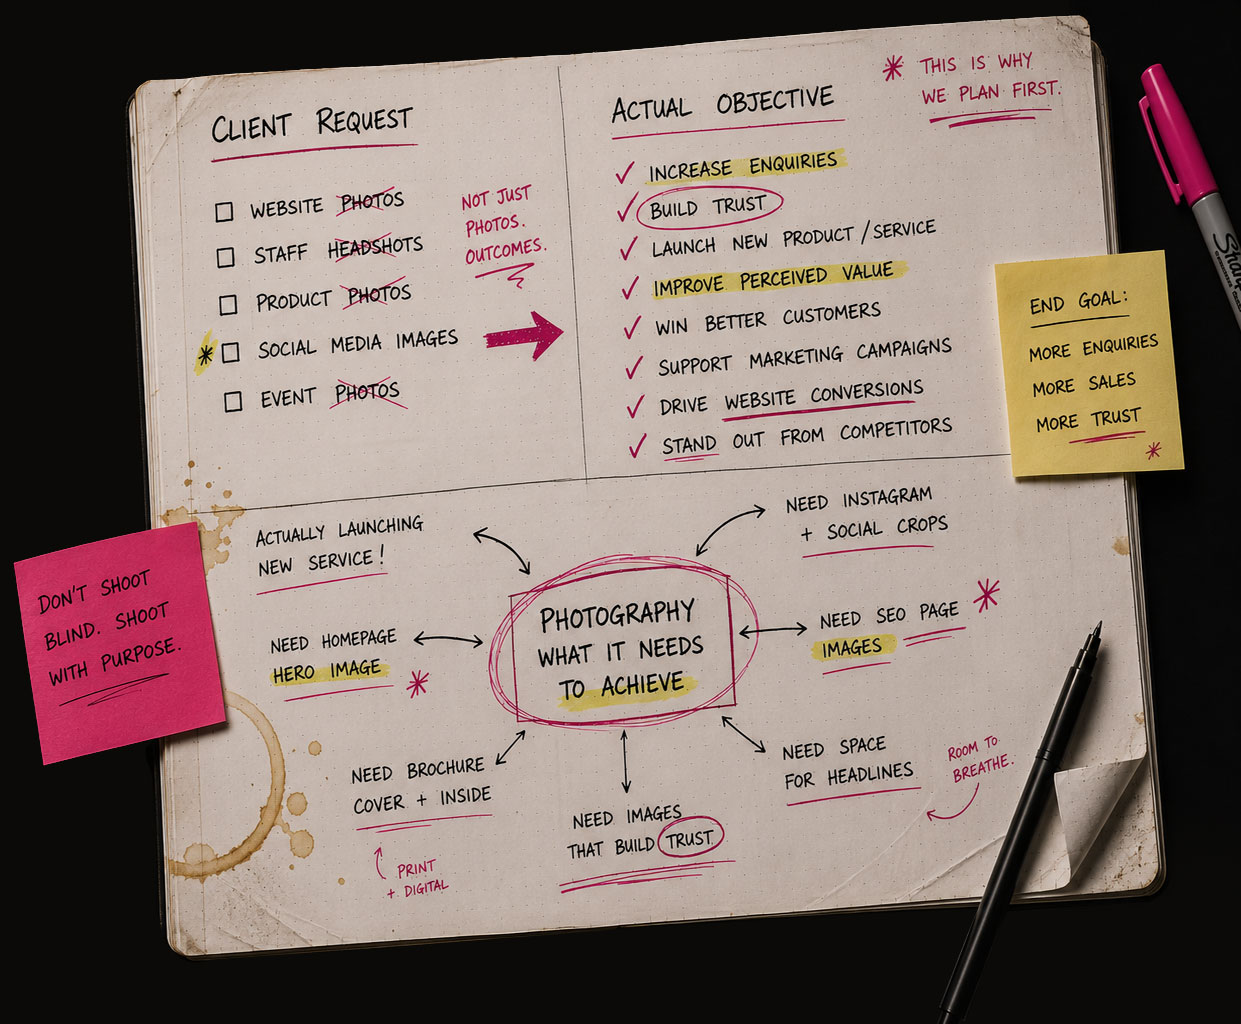 CLIENT REQUEST
WEBSITE PHOTOS
STAFF HEADSHOTS
PRODUCT PHOTOS
SOCIAL MEDIA IMAGES
EVENT PHOTOS
NOT JUST
PHOTOS.
OUTCOMES.
ACTUAL OBJECTIVE
INCREASE ENQUIRIES
BUILD TRUST
LAUNCH NEW PRODUCT / SERVICE
IMPROVE PERCEIVED VALUE
WIN BETTER CUSTOMERS
SUPPORT MARKETING CAMPAIGNS
DRIVE WEBSITE CONVERSIONS
STAND OUT FROM COMPETITORS
THIS IS WHY
WE PLAN FIRST.
END GOAL:
MORE ENQUIRIES
MORE SALES
MORE TRUST
DON'T SHOOT
BLIND. SHOOT
WITH PURPOSE.
ACTUALLY LAUNCHING
NEW SERVICE!
NEED INSTAGRAM
+ SOCIAL CROPS
NEED HOMEPAGE
HERO IMAGE
PHOTOGRAPHY
WHAT IT NEEDS
TO ACHIEVE
NEED SEO PAGE
IMAGES
NEED BROCHURE
COVER + INSIDE
PRINT
+ DIGITAL
NEED IMAGES
THAT BUILD TRUST
NEED SPACE
FOR HEADLINES
ROOM TO
BREATHE.